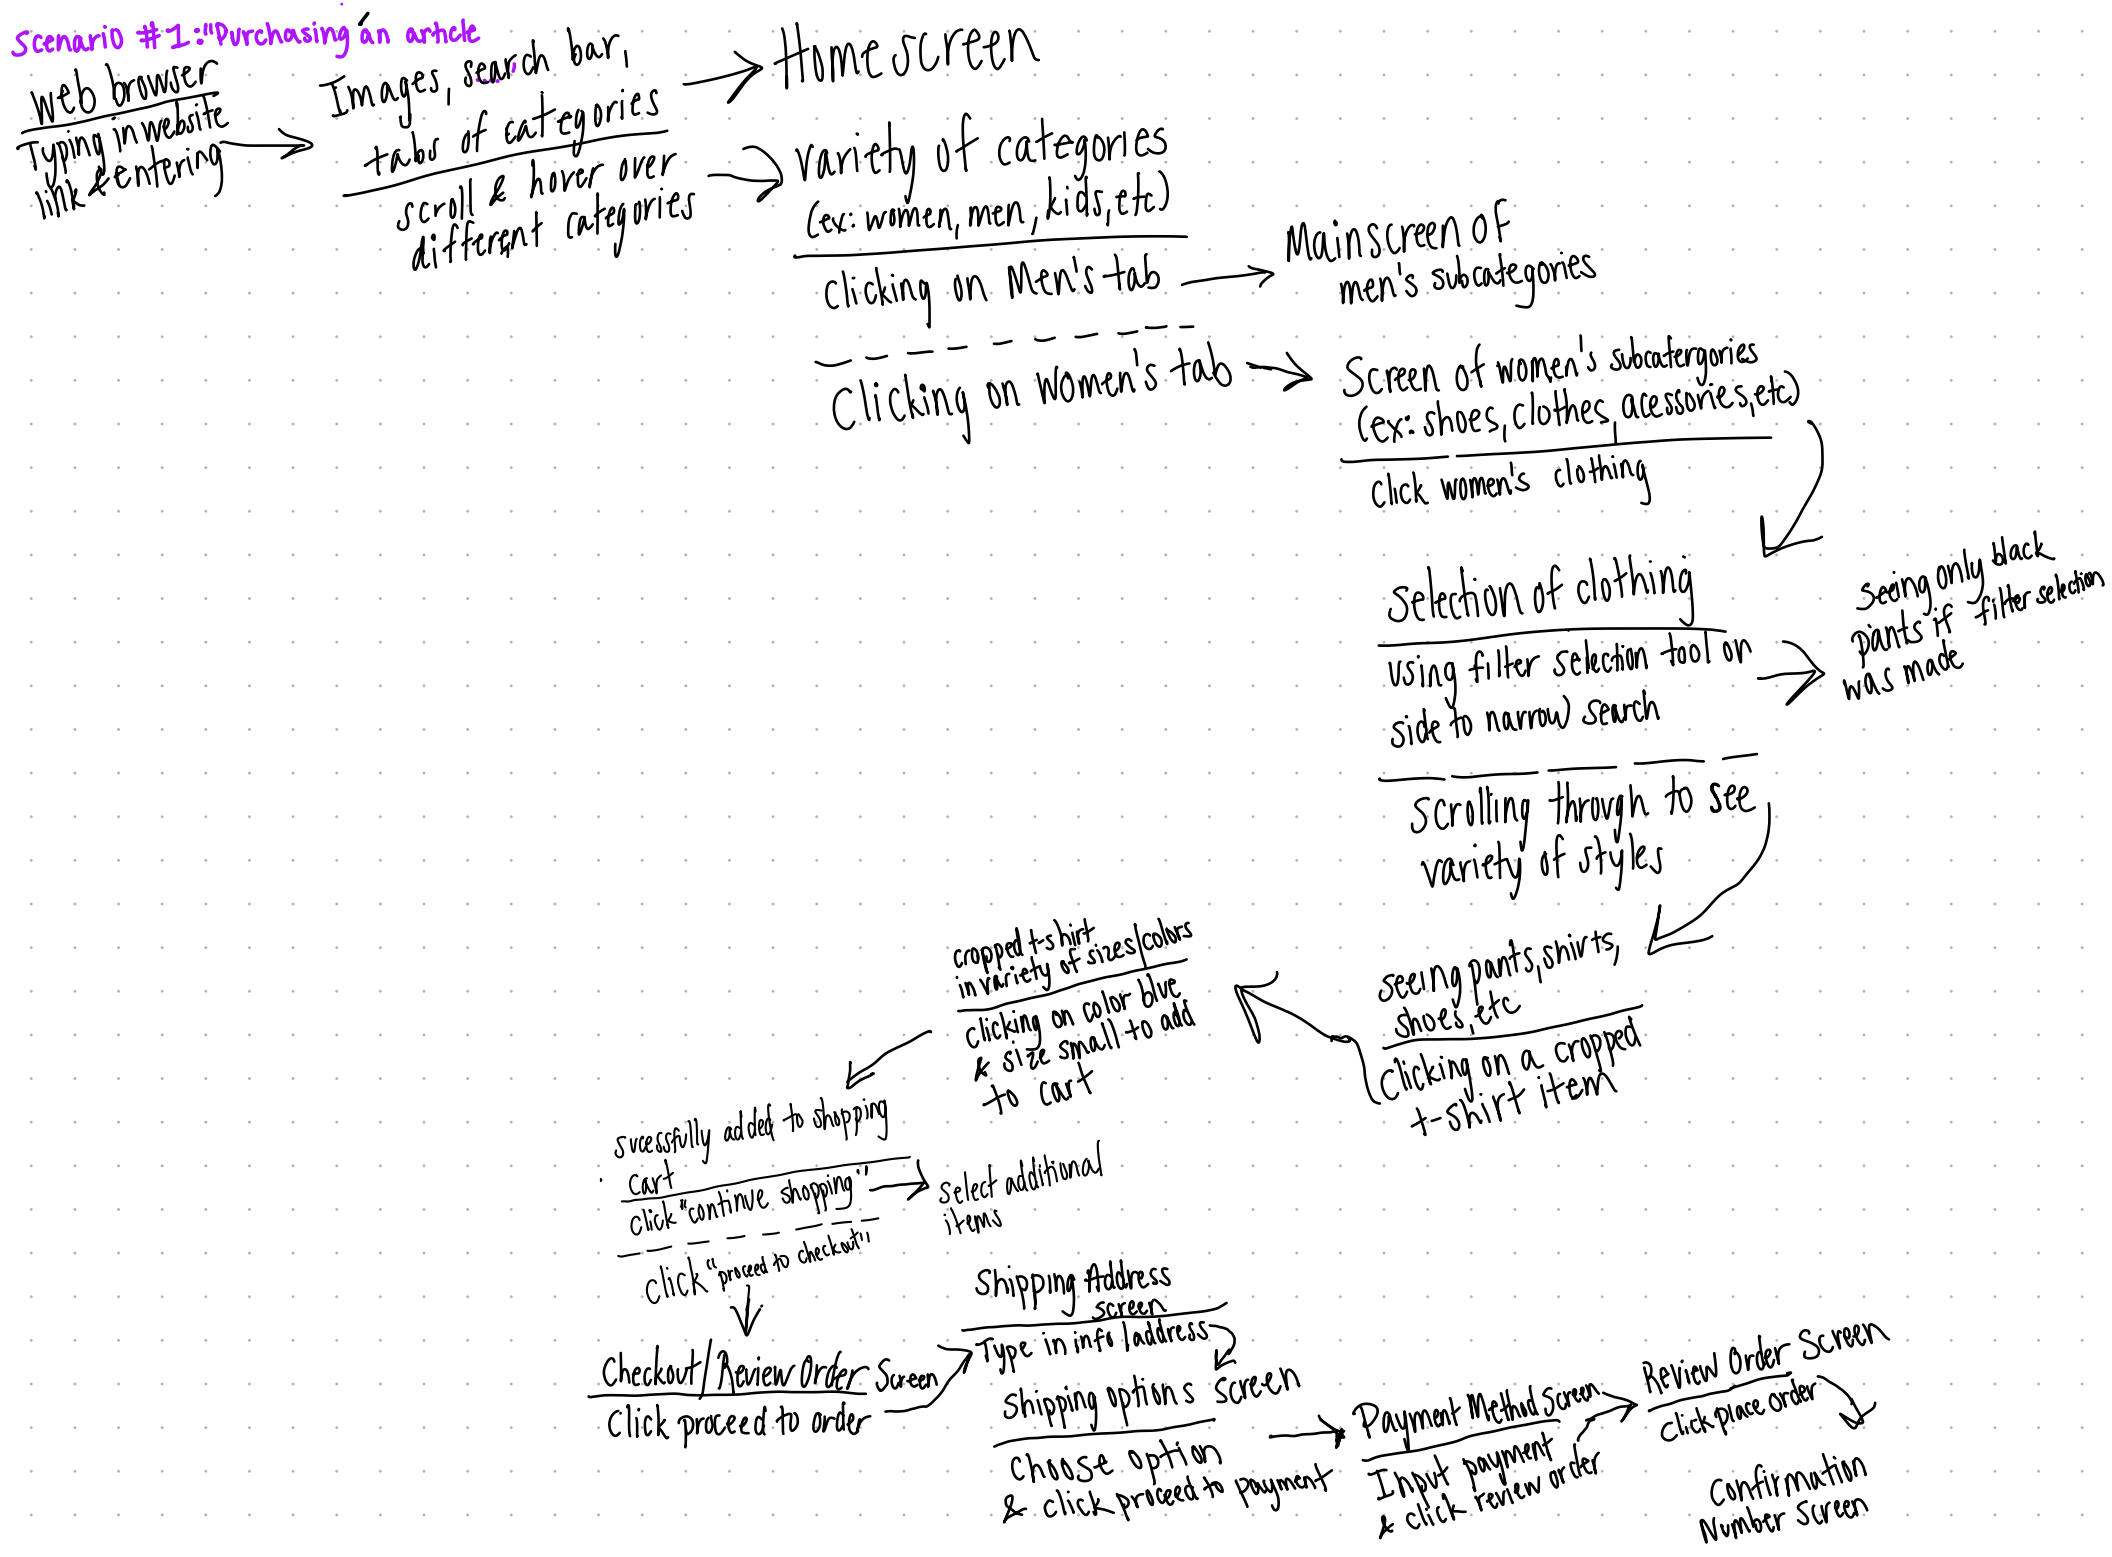 Scenario #1: "Purchasing an article
web browser
Typing in website
link & entering
Images, search bar,
tabs of categories
scroll & hover over
different categories
Homescreen
variety of categories
(ex: women, men, kids, etc)
clicking on Men's tab
Clicking on women's tab
Mainscreen of
men's subcategories
Screen of women's subcatergories
(ex: shoes, clothes, acessories, etc)
click women's clothing
selection of clothing
using filter selection tool on
side to narrow search
scrolling through to see
variety of styles
seeing only black
pants if filter selection
was made
seeing pants, shirts,
shoes, etc
Clicking on a cropped
t-shirt item
cropped t-shirt
in variety of sizes/colors
clicking on color blue
& size small to add
to cart
sucessfully added to shopping
cart
click "continue shopping"
click "proceed to checkout"
select additional
items
Checkout/Review Order Screen
Click proceed to order
Shipping Address
screen
Type in info/address
Shipping options screen
choose option
& click proceed to payment
Payment Method Screen
Input payment
& click review order
Review Order Screen
click place order
Confirmation
Number Screen